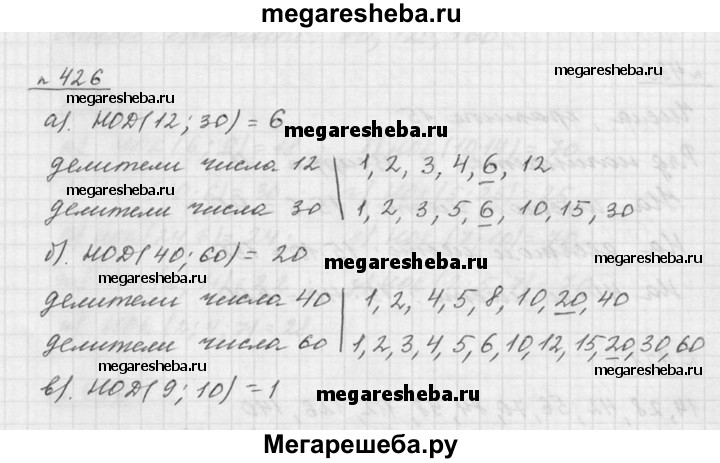 megaresheba.ru
№ 426
megaresheba.ru
megaresheba.ru
а). НОД(12; 30) = 6
megaresheba.ru
делители числа 12 | 1, 2, 3, 4, 6, 12
megaresheba.ru
делители числа 30 | 1, 2, 3, 5, 6, 10, 15, 30
б). НОД(40; 60) = 20
megaresheba.ru
megaresheba.ru
делители числа 40 | 1, 2, 4, 5, 8, 10, 20, 40
делители числа 60 | 1, 2, 3, 4, 5, 6, 10, 12, 15, 20, 30, 60
megaresheba.ru
megaresheba.ru
в). НОД(9; 10) = 1
megaresheba.ru
Мегарешеба.ру